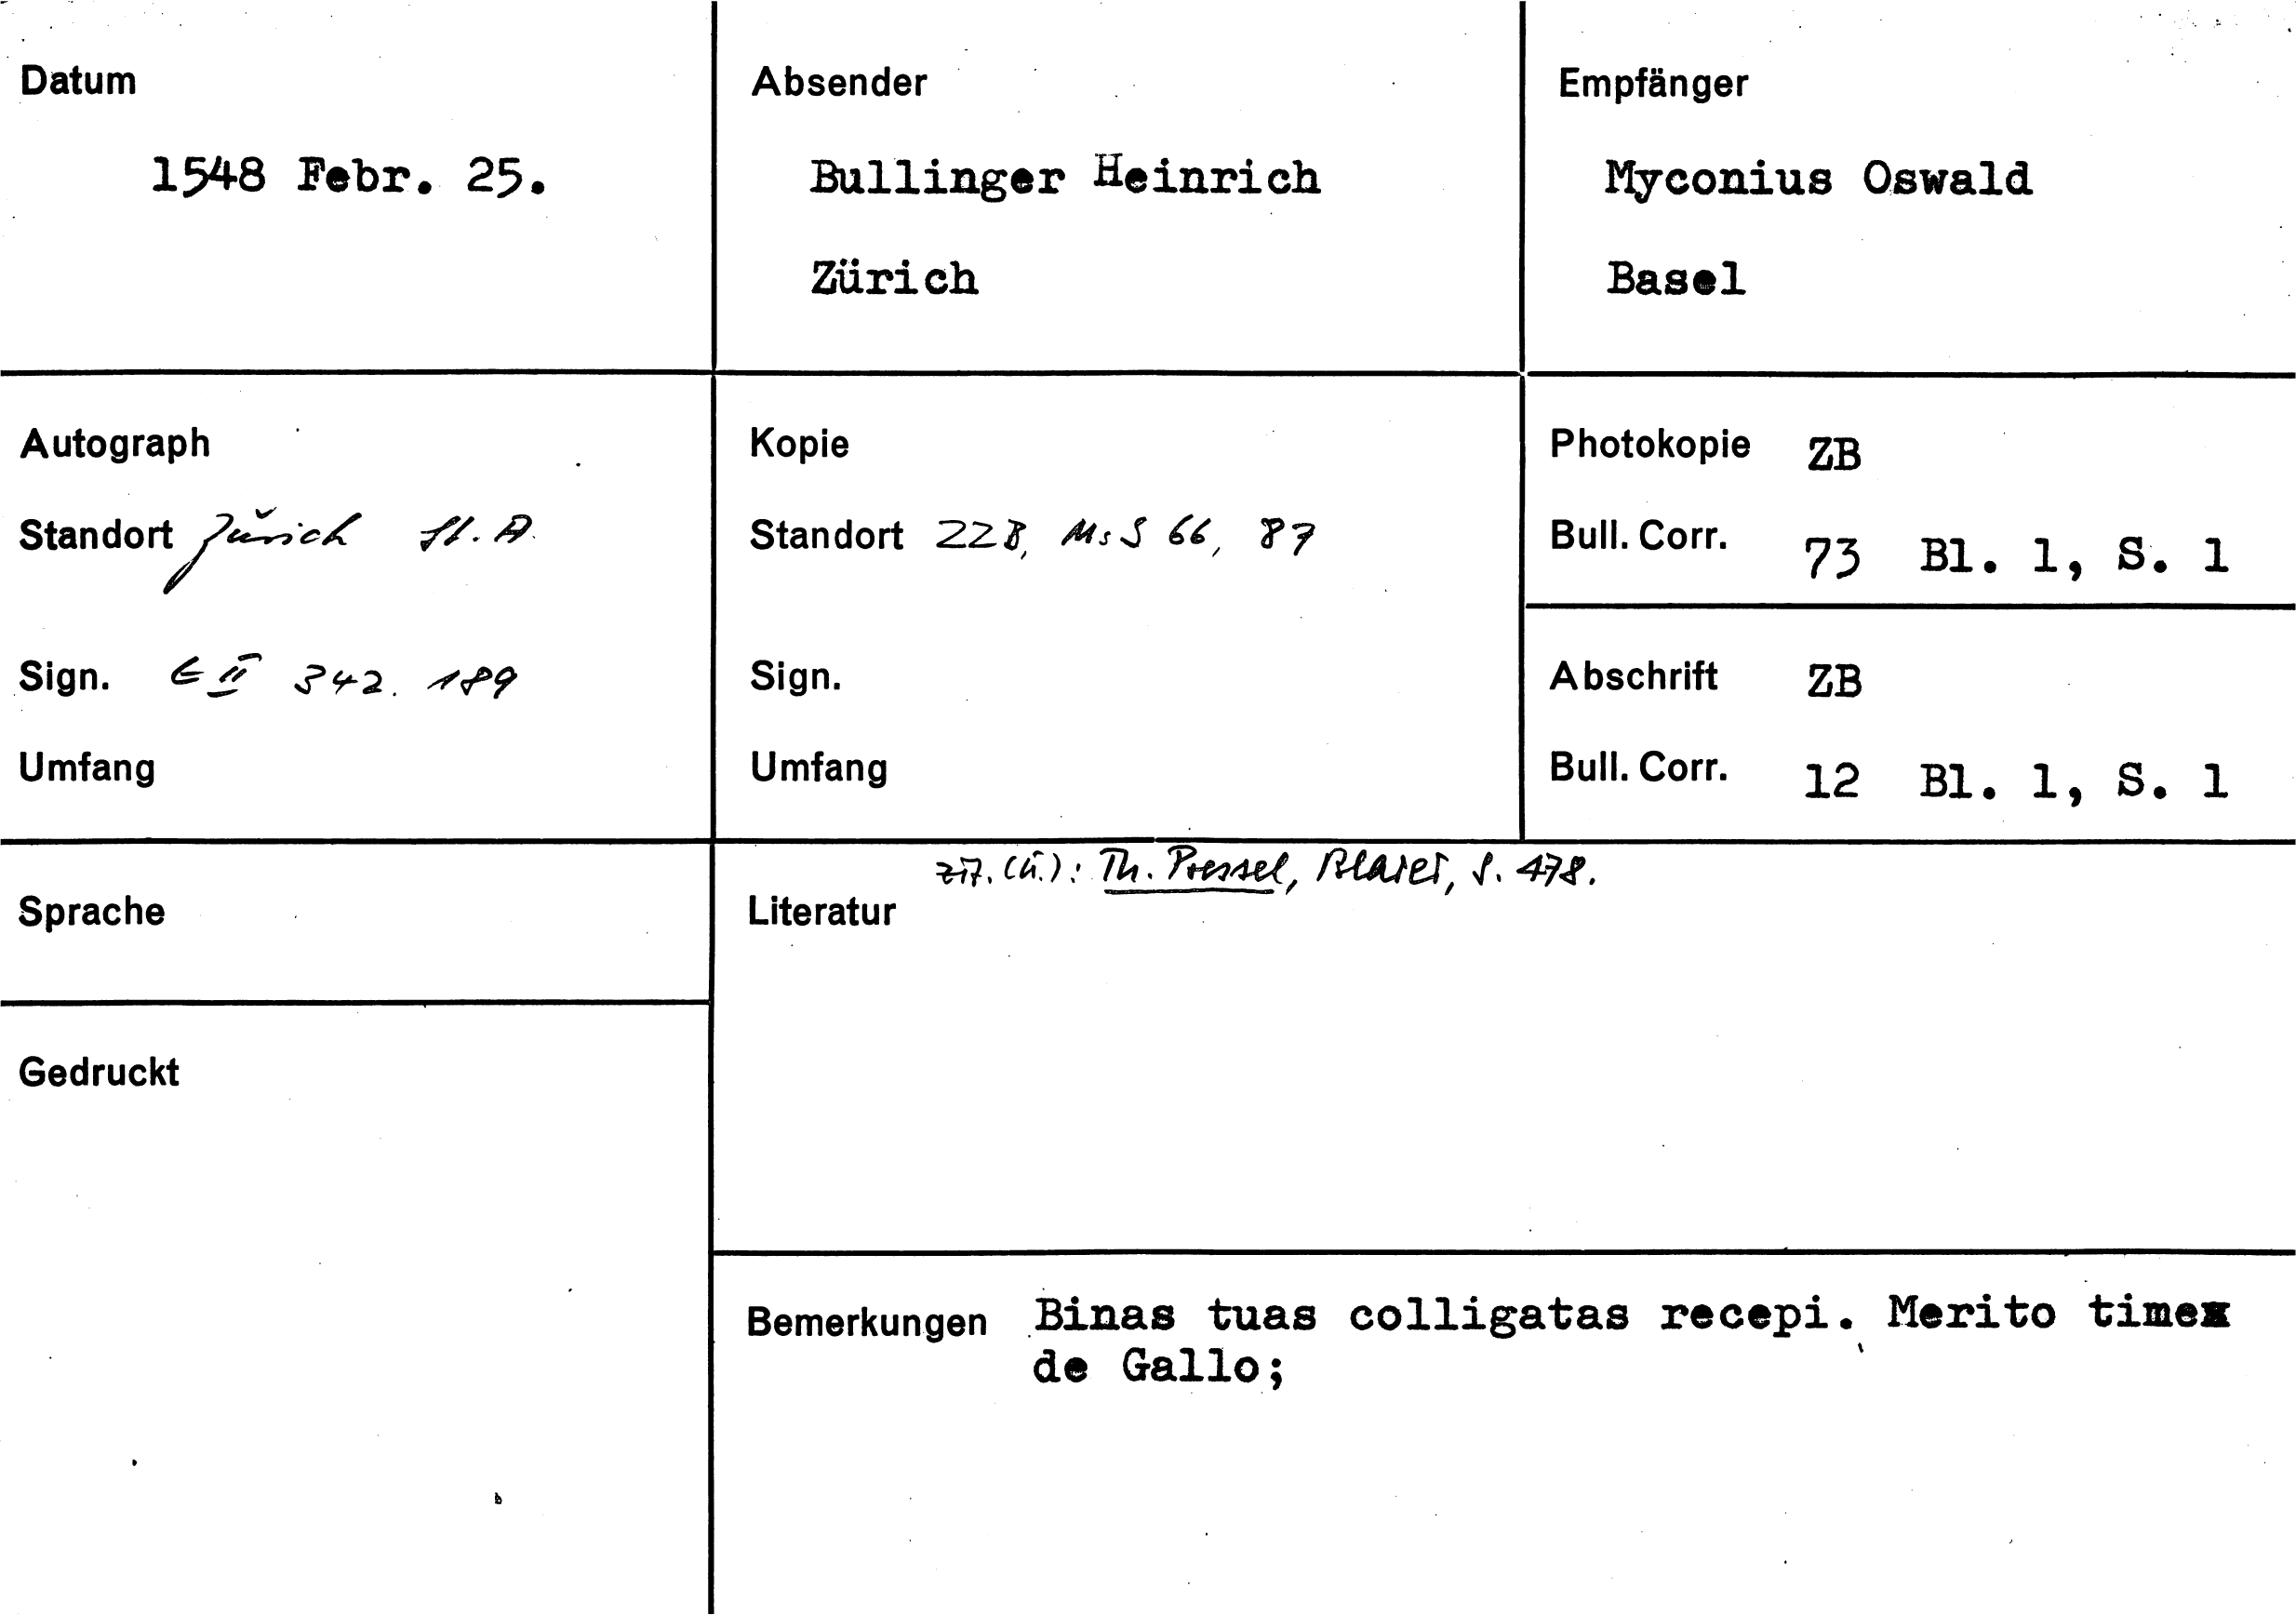 Datum
1548 Febr. 25.
Absender
Bullinger Heinrich
Zürich
Empfänger
Myconius Oswald
Basel
Autograph
Standort Zürich St. A.
Sign. E II 342. 189
Umfang
Kopie
Standort ZZB, Ms S 66, 87
Sign.
Umfang
Photokopie ZB
Bull. Corr. 73 Bl. 1, S. 1
Abschrift ZB
Bull. Corr. 12 Bl. 1, S. 1
Sprache
Gedruckt
zit. (ü.): Th. Pressel, Blarer, S. 478.
Literatur
Bemerkungen Binas tuas colligatas recepi. Merito times
de Gallo;